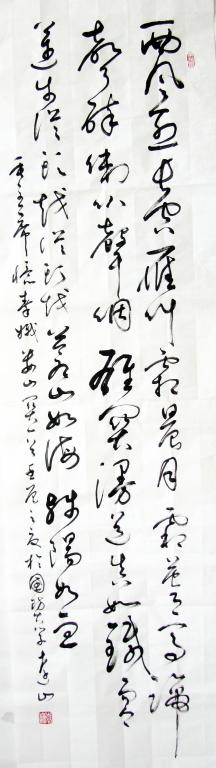 西风烈长空雁叫霜晨月霜晨月马蹄
声碎喇叭声咽雄关漫道真如铁而今
迈步从头越从头越苍山如海残阳如血
毛主席忆秦娥娄山关 之夏于国防大学